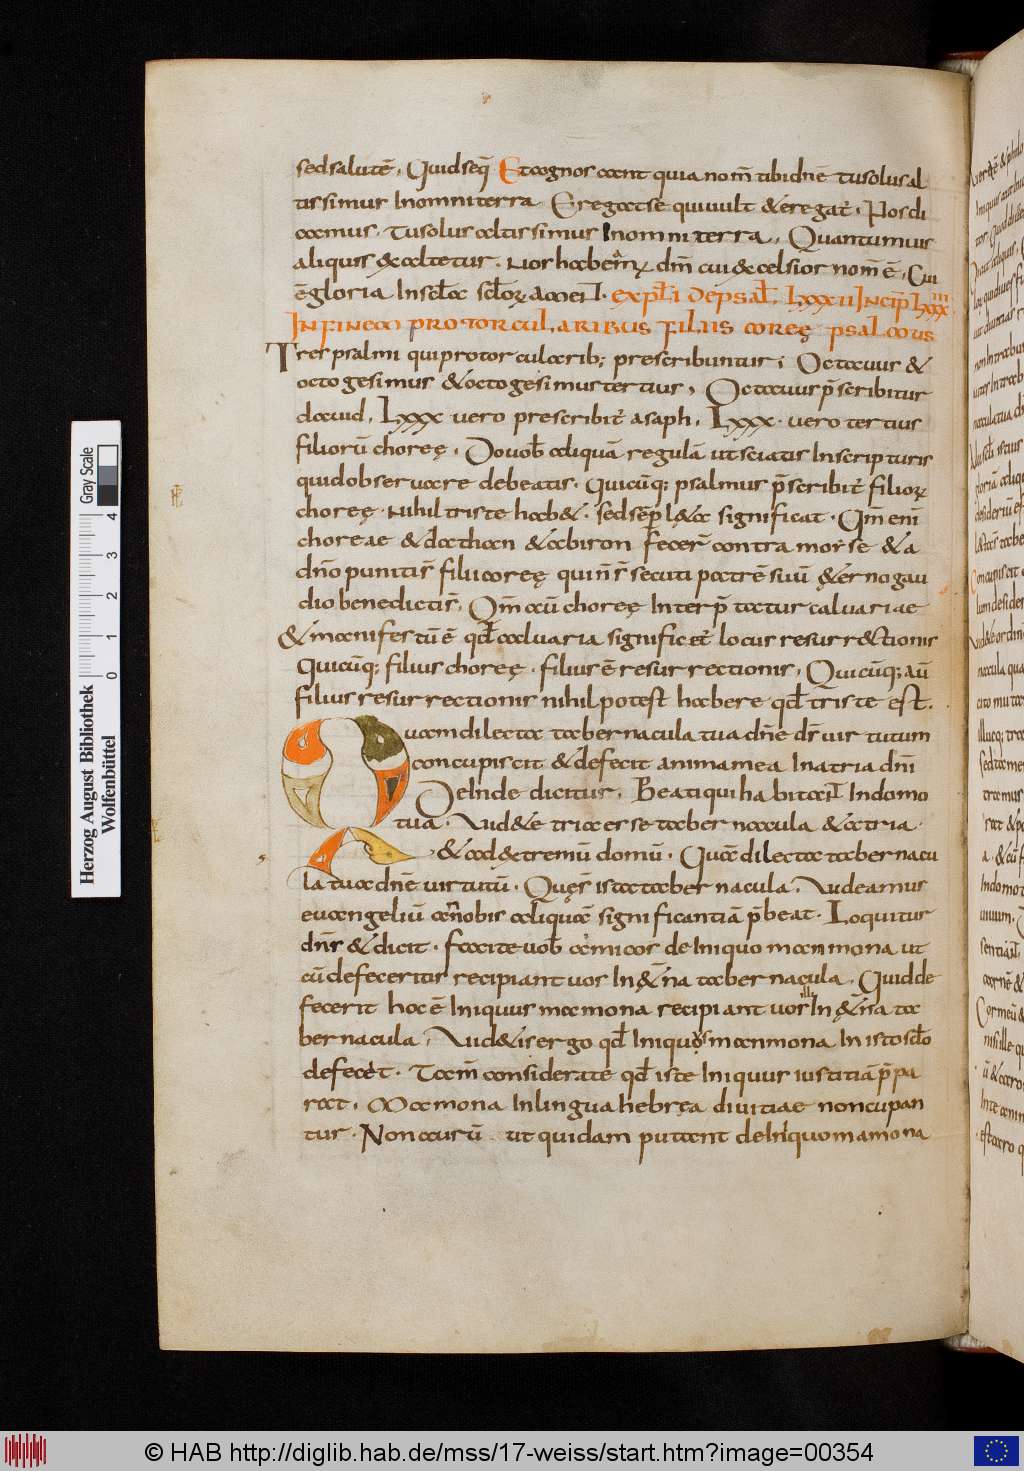 sed salutē, Quid seq̄ Et cognoscant quia nom̄ tibi dn̄e tu solus al
tissimus In omni terra. Ergo & se qui uult & eregat᷑. Nos di
camus. Tu solus altissimus In omni terra, Quantum uis
aliquis exaltetur. nos habem᷑ dn̄m cui excelsior nom̄ ē, Cui
ē gloria In scła scłoꝝ amen. expłi de psał. LXXXII Incip̄ LXXXIII
IN FINEM PRO TORCULARIBUS FILIIS COREĘ PSALMUS
Tres psalmi qui pro torcularib; prescribuntur; Octauus &
octogesimus & octogesimus tertius, Octauus p̄scribitur
dauid, LXXX uero prescribit᷑ asaph, LXXX. uero tertius
filiorū choreę, Do uob̄ aliquā regulā ut sciatis In scripturis
quid obseruare debeatis. Quicūq; psalmus p̄scribit᷑ filioꝝ
choreę. nihil triste hab&. sed semp̄ l&a significat. Qm̄ eni
choreae & dathan & abiron fecer̄ contra morse & a
dn̄o puniti s̄ filii coreę qui n̄ s̄ secuti patrē suū &erno gau
dio benedicti s̄, Qm̄ aū choreę Interp̄tatur caluariae
& manifestū ē qđ caluaria significat locus resurrectionis
Quicūq; filius choreę. filius ē resurrectionis, Quicūq; aū
filius resurrectionis nihil potest habere qđ triste est.
Quam dilecta tabernacula tua dn̄e ds̄ uirtutum
concupiscit & defecit anima mea In atria dn̄i
Deinde dicitur, Beati qui habitant In domo
tua. Uid&e tria esse tabernacula & atria.
& ad extremū domū. Quā dilecta tabernacu
la tua dn̄e uirtutū. Quę s̄ ista tabernacula. Uideamus
euangeliū an nobis aliquā significantiā p̄beat. Loquitur
dn̄s & dicit. Facite uob̄ amicos de Iniquo mammona ut
cū defeceritis recipiant uos In &n̄a tabernacula. Quid de
fecerit hoc ē Iniquus mamona recipiant uos illi In &n̄a ta
bernacula, Uid&is ergo qđ Iniquus mammona In isto scło
defecit. Tam̄ considerate qđ iste Iniquus iustitiā p̄pa
rat, Mamona In lingua hebręa diuitiae noncupan
tur. Non aurū ut quidam putant de Iniquo mamona
Herzog August Bibliothek
Wolfenbüttel
0 1 2 3 4
Gray Scale
© HAB http://diglib.hab.de/mss/17-weiss/start.htm?image=00354